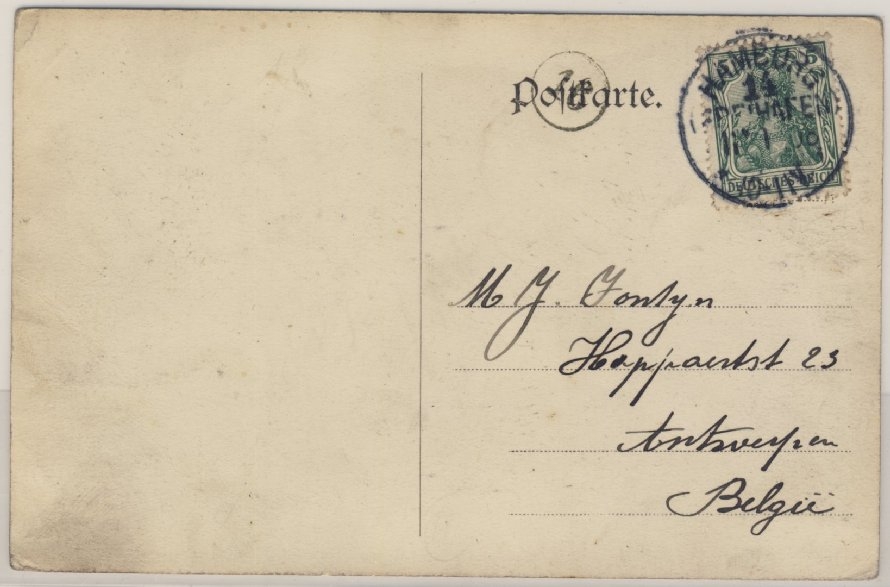 Postkarte.
5
HAMBURG
14
DEUTSCHES REICH
M J. Fontyn
Hoppaertst 23
Antwerpen
België